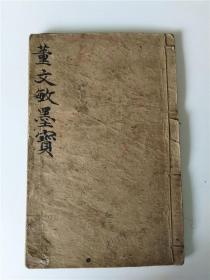 董文敏墨寶